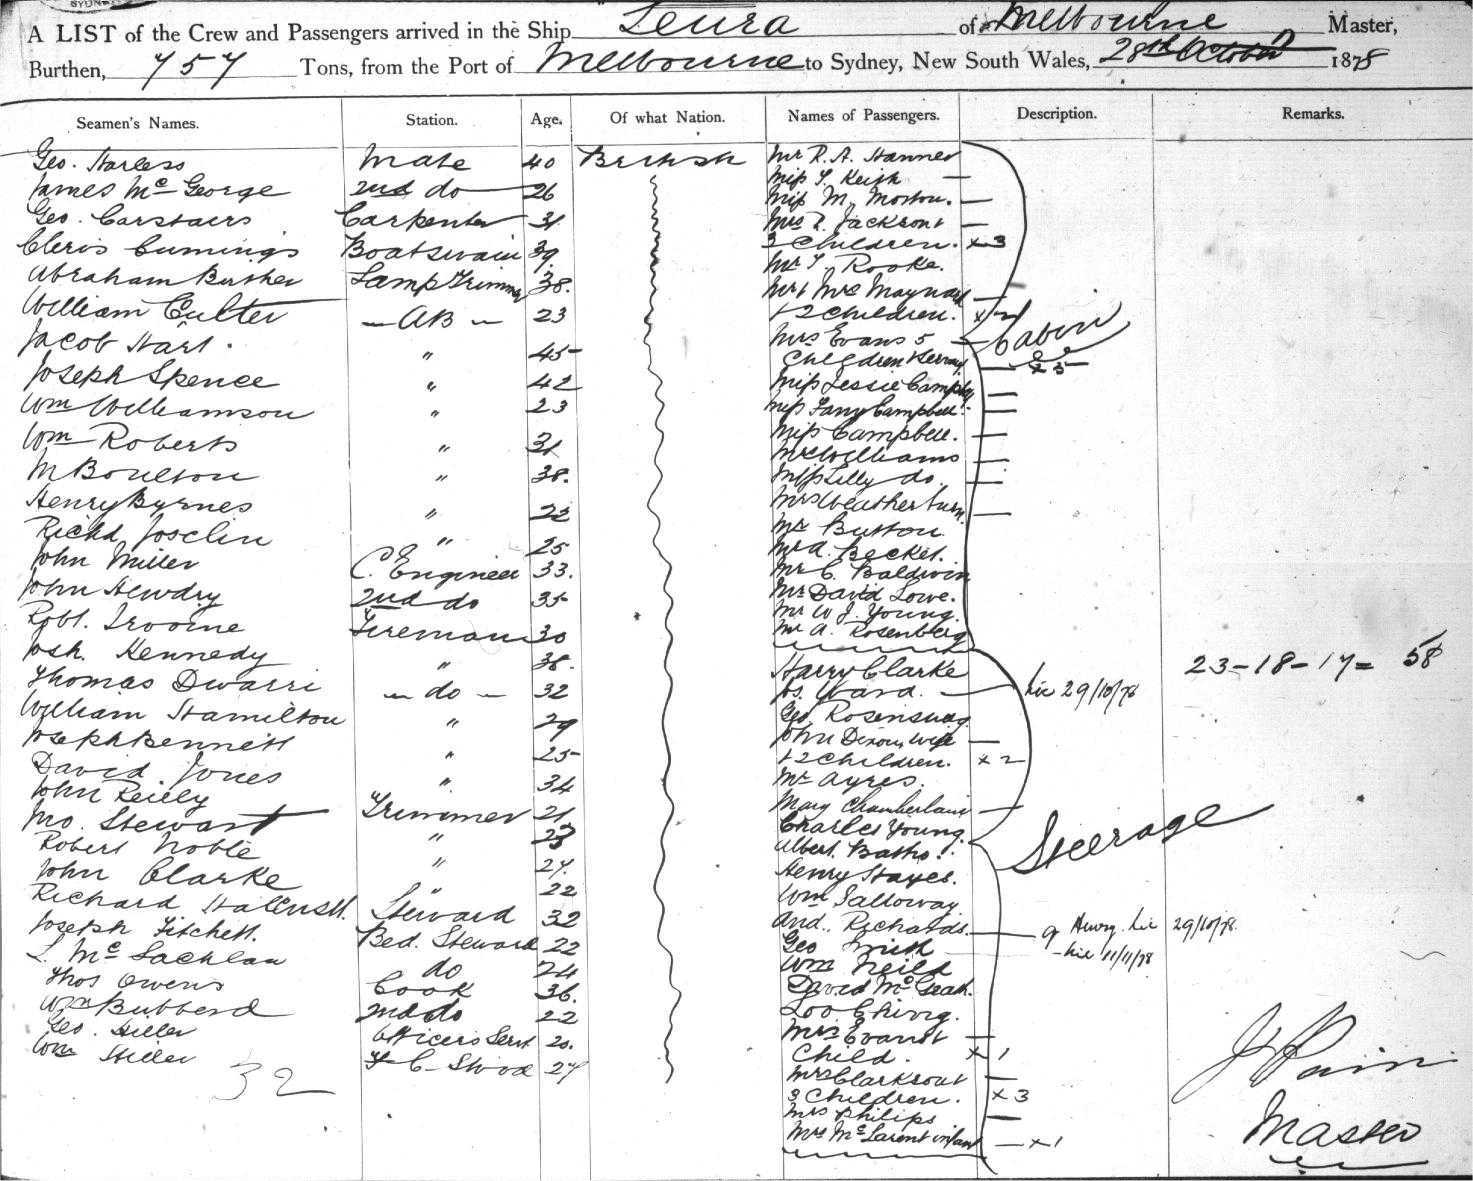 SYDNEY
A LIST of the Crew and Passengers arrived in the Ship Leura of Melbourne Master,
Burthen, 757 Tons, from the Port of Melbourne to Sydney, New South Wales, 28th October 1878
Seamen's Names. Station. Age. Of what Nation. Names of Passengers. Description. Remarks.
Geo. Harless Mate 40 British Mr R. A. Hanner
James McGeorge 2nd do 26 Miss T. Keigh —
Geo. Carstairs Carpenter 31 Miss M. Morton. —
Cleris Cumings Boatswain 39. Mrs T. Jackson + —
3 Children. x 3
Abraham Busher Lamp Trimmer 38. Mr T Rooke.
Mr & Mrs Maynard —
William Culter — AB — 23 + 2 Children. x 2
Jacob Hart. " 45 Mrs Evans 5 — Cabin
Children & Servant — x 5 —
Joseph Spence " 42 Miss Jessie Campbell —
Wm Williamson " 23 Miss Fanny Campbell. —
Wm Roberts " 31 Miss Campbell. —
Mrs Williams —
M Boulton " 38. Miss Lilly do. —
Henry Byrnes " 22 Mrs Weatherburn. —
Mr Button
Richd Joselin " 25 Mr A. Becket.
John Miller C. Engineer 33. Mr C. Baldwin
John Hewdry 2nd do 35 Mr David Lowe.
Mr W J. Young.
Robt. Irvine Fireman 30 Mr A. Rosenberg
Josh. Kennedy " 38. Harry Clarke 23 - 18 - 17 = 58
Thomas Dwarri — do — 32 Js. Ward. — 29/10/78
William Hamilton " 29 Geo. Rosenswag
Joseph Bennett " 25 John Dixon, wife —
+ 2 Children. x 2
David Jones " 34 Mr Ayres.
John Reilly Trimmer 21 Mary Chamberlain —
Jno. Stewart " 23 Charles Young. Steerage
Robert Noble " 27. Albert Baths.
John Clarke " 22 Henry Hayes.
Richard Steward 32 Wm Galloway
Joseph Fitchett. Bed. Steward 22 And. Richards. — 29/10/78
L McLachlan do 24 Geo Smith 11/11/78
Thos Owens Cook 36. Wm Neild
Wm Bubberd 2nd do 22 David McGrath.
Geo. Hiller Officers Servt 20. Loo Ching.
Wm Hiller F C Stwd 27 Mrs Evans + —
32 Child. x 1
Mrs Clarkson + —
3 Children. x 3
Mrs Philips —
Mrs McLaren + infant — x 1
Master